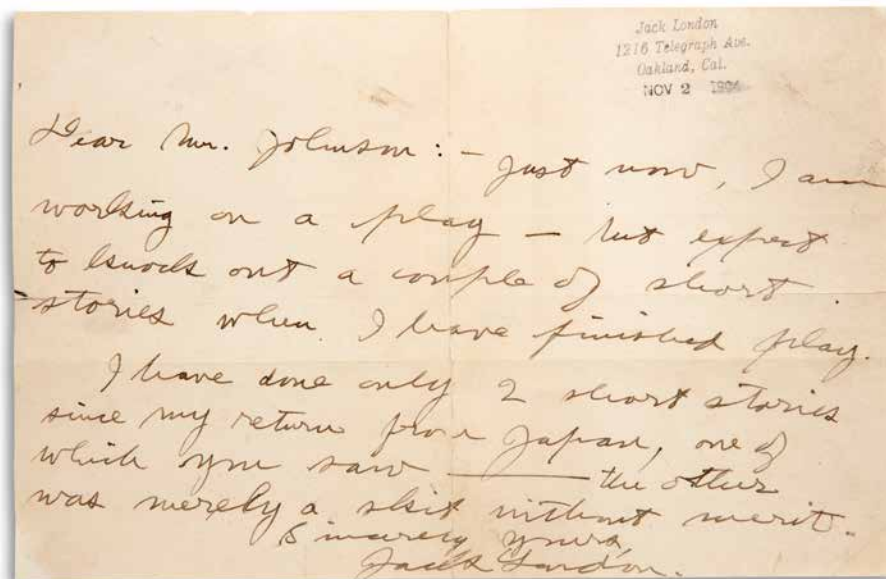 Jack London
1216 Telegraph Ave.
Oakland, Cal.
NOV 2 1904
Dear Mr. Johnson: — Just now, I am
working on a play — but expect
to knock out a couple of short
stories when I have finished play.
I have done only 2 short stories
since my return from Japan, one of
which you saw — the other
was merely a skit without merit.
Sincerely yours,
Jack London.